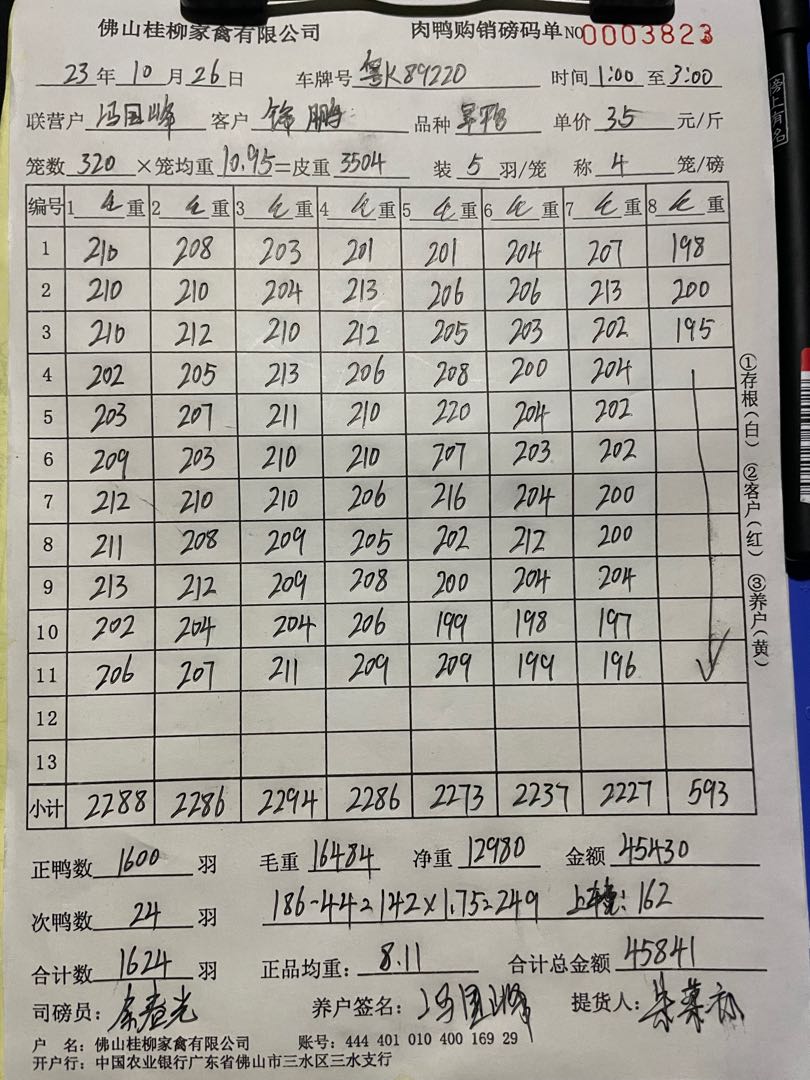 佛山桂柳家禽有限公司 肉鸭购销磅码单 NO 0003823
23年10月26日 车牌号 粤K89220 时间 1:00 至 3:00
联营户 冯国峰 客户 锦鹏 品种 单价 35 元/斤
笼数 320 ×笼均重 10.95 =皮重 3504 装 5 羽/笼 称 4 笼/磅
编号 1 毛重 2 毛重 3 毛重 4 毛重 5 毛重 6 毛重 7 毛重 8 毛重
1 210 208 203 201 201 204 207 198
2 210 210 204 213 206 206 213 200
3 210 212 210 212 205 203 202 195
4 202 205 213 206 208 200 204
5 203 207 211 210 220 204 202
6 209 203 210 210 207 203 202
7 212 210 210 206 216 204 200
8 211 208 209 205 202 212 200
9 213 212 209 208 200 204 204
10 202 204 204 206 199 198 197
11 206 207 211 209 209 199 196
12
13
小计 2288 2286 2294 2286 2273 2237 2227 593
①存根(白) ②客户(红) ③养户(黄)
正鸭数 1600 羽 毛重 16484 净重 12980 金额 45430
次鸭数 24 羽 186-44=142×1.75=249 上车费: 162
合计数 1624 羽 正品均重: 8.11 合计总金额 45841
司磅员: 养户签名: 冯国峰 提货人:
户 名: 佛山桂柳家禽有限公司 账号: 444 401 010 400 169 29
开户行: 中国农业银行广东省佛山市三水区三水支行
榜上有名